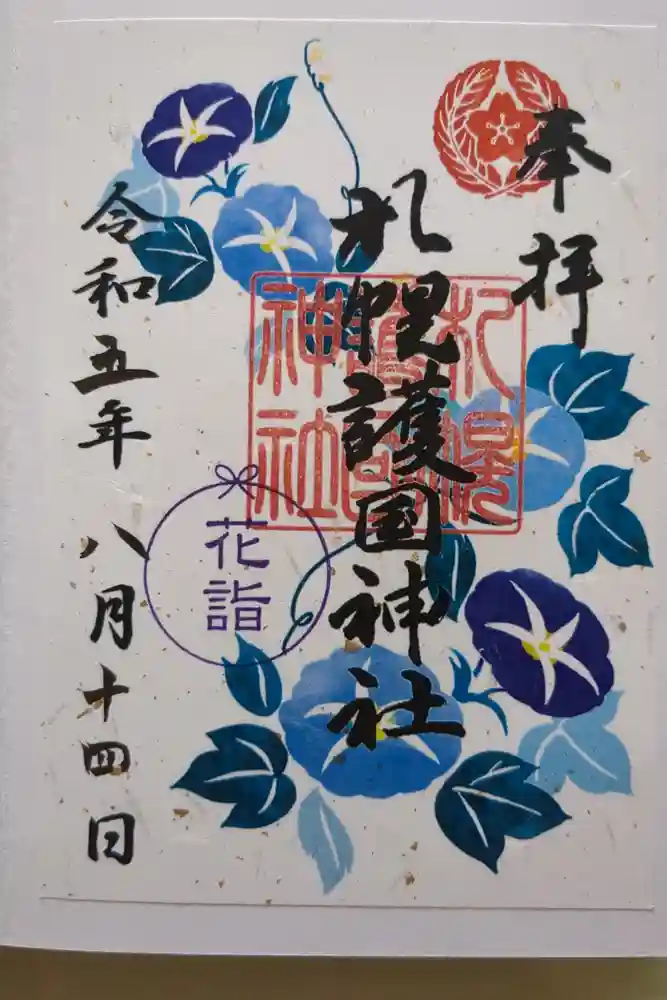 奉拝
札幌護国神社
札幌
護国
神社
花詣
令和五年八月十四日